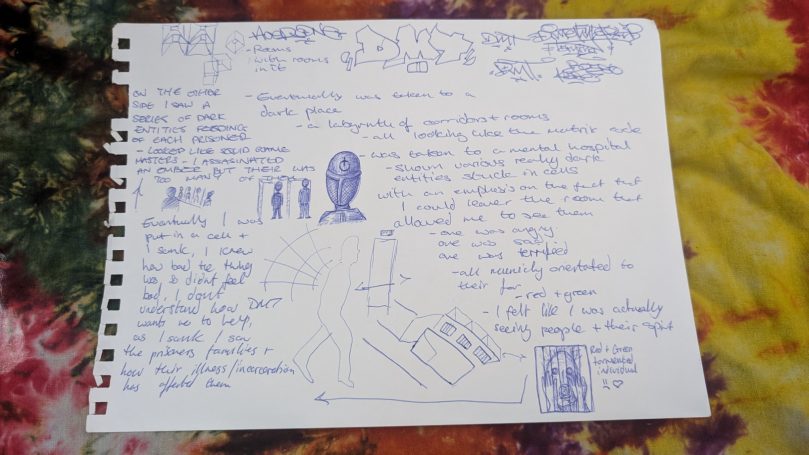 - Rooms
with rooms
in it
DMT
DMT
DMT
- Eventually was taken to a
dark place
- a labyrinth of corridors + rooms
- all looking like the matrix code
- was taken to a mental hospital
- shown various really dark
entities stuck in cells
with an emphisis on the fact that
I could leaver the room that
allowed me to see them
- one was angry
one was sad
one was terrified
- all orientated to
their
- red + green
- I felt like I was actually
seeing people + their spirit
Red + Green
tormented
individual
ON THE OTHER
SIDE I SAW A
SERIES OF DARK
ENTITIES FEEDING
OF EACH PRISONER
- LOOKED LIKE SQUID GAME
MASTERS - I ASSASINATED
AN BUT THEIR WAS
TOO MANY OF THEM
Eventually I was
put in a cell +
I sank, I knew
how bad the thing
was so didnt feel
bad, I dont
understand how DMT
wants me to help,
as I sank I saw
the prisoners families +
how their illness/incarceration
has affected them